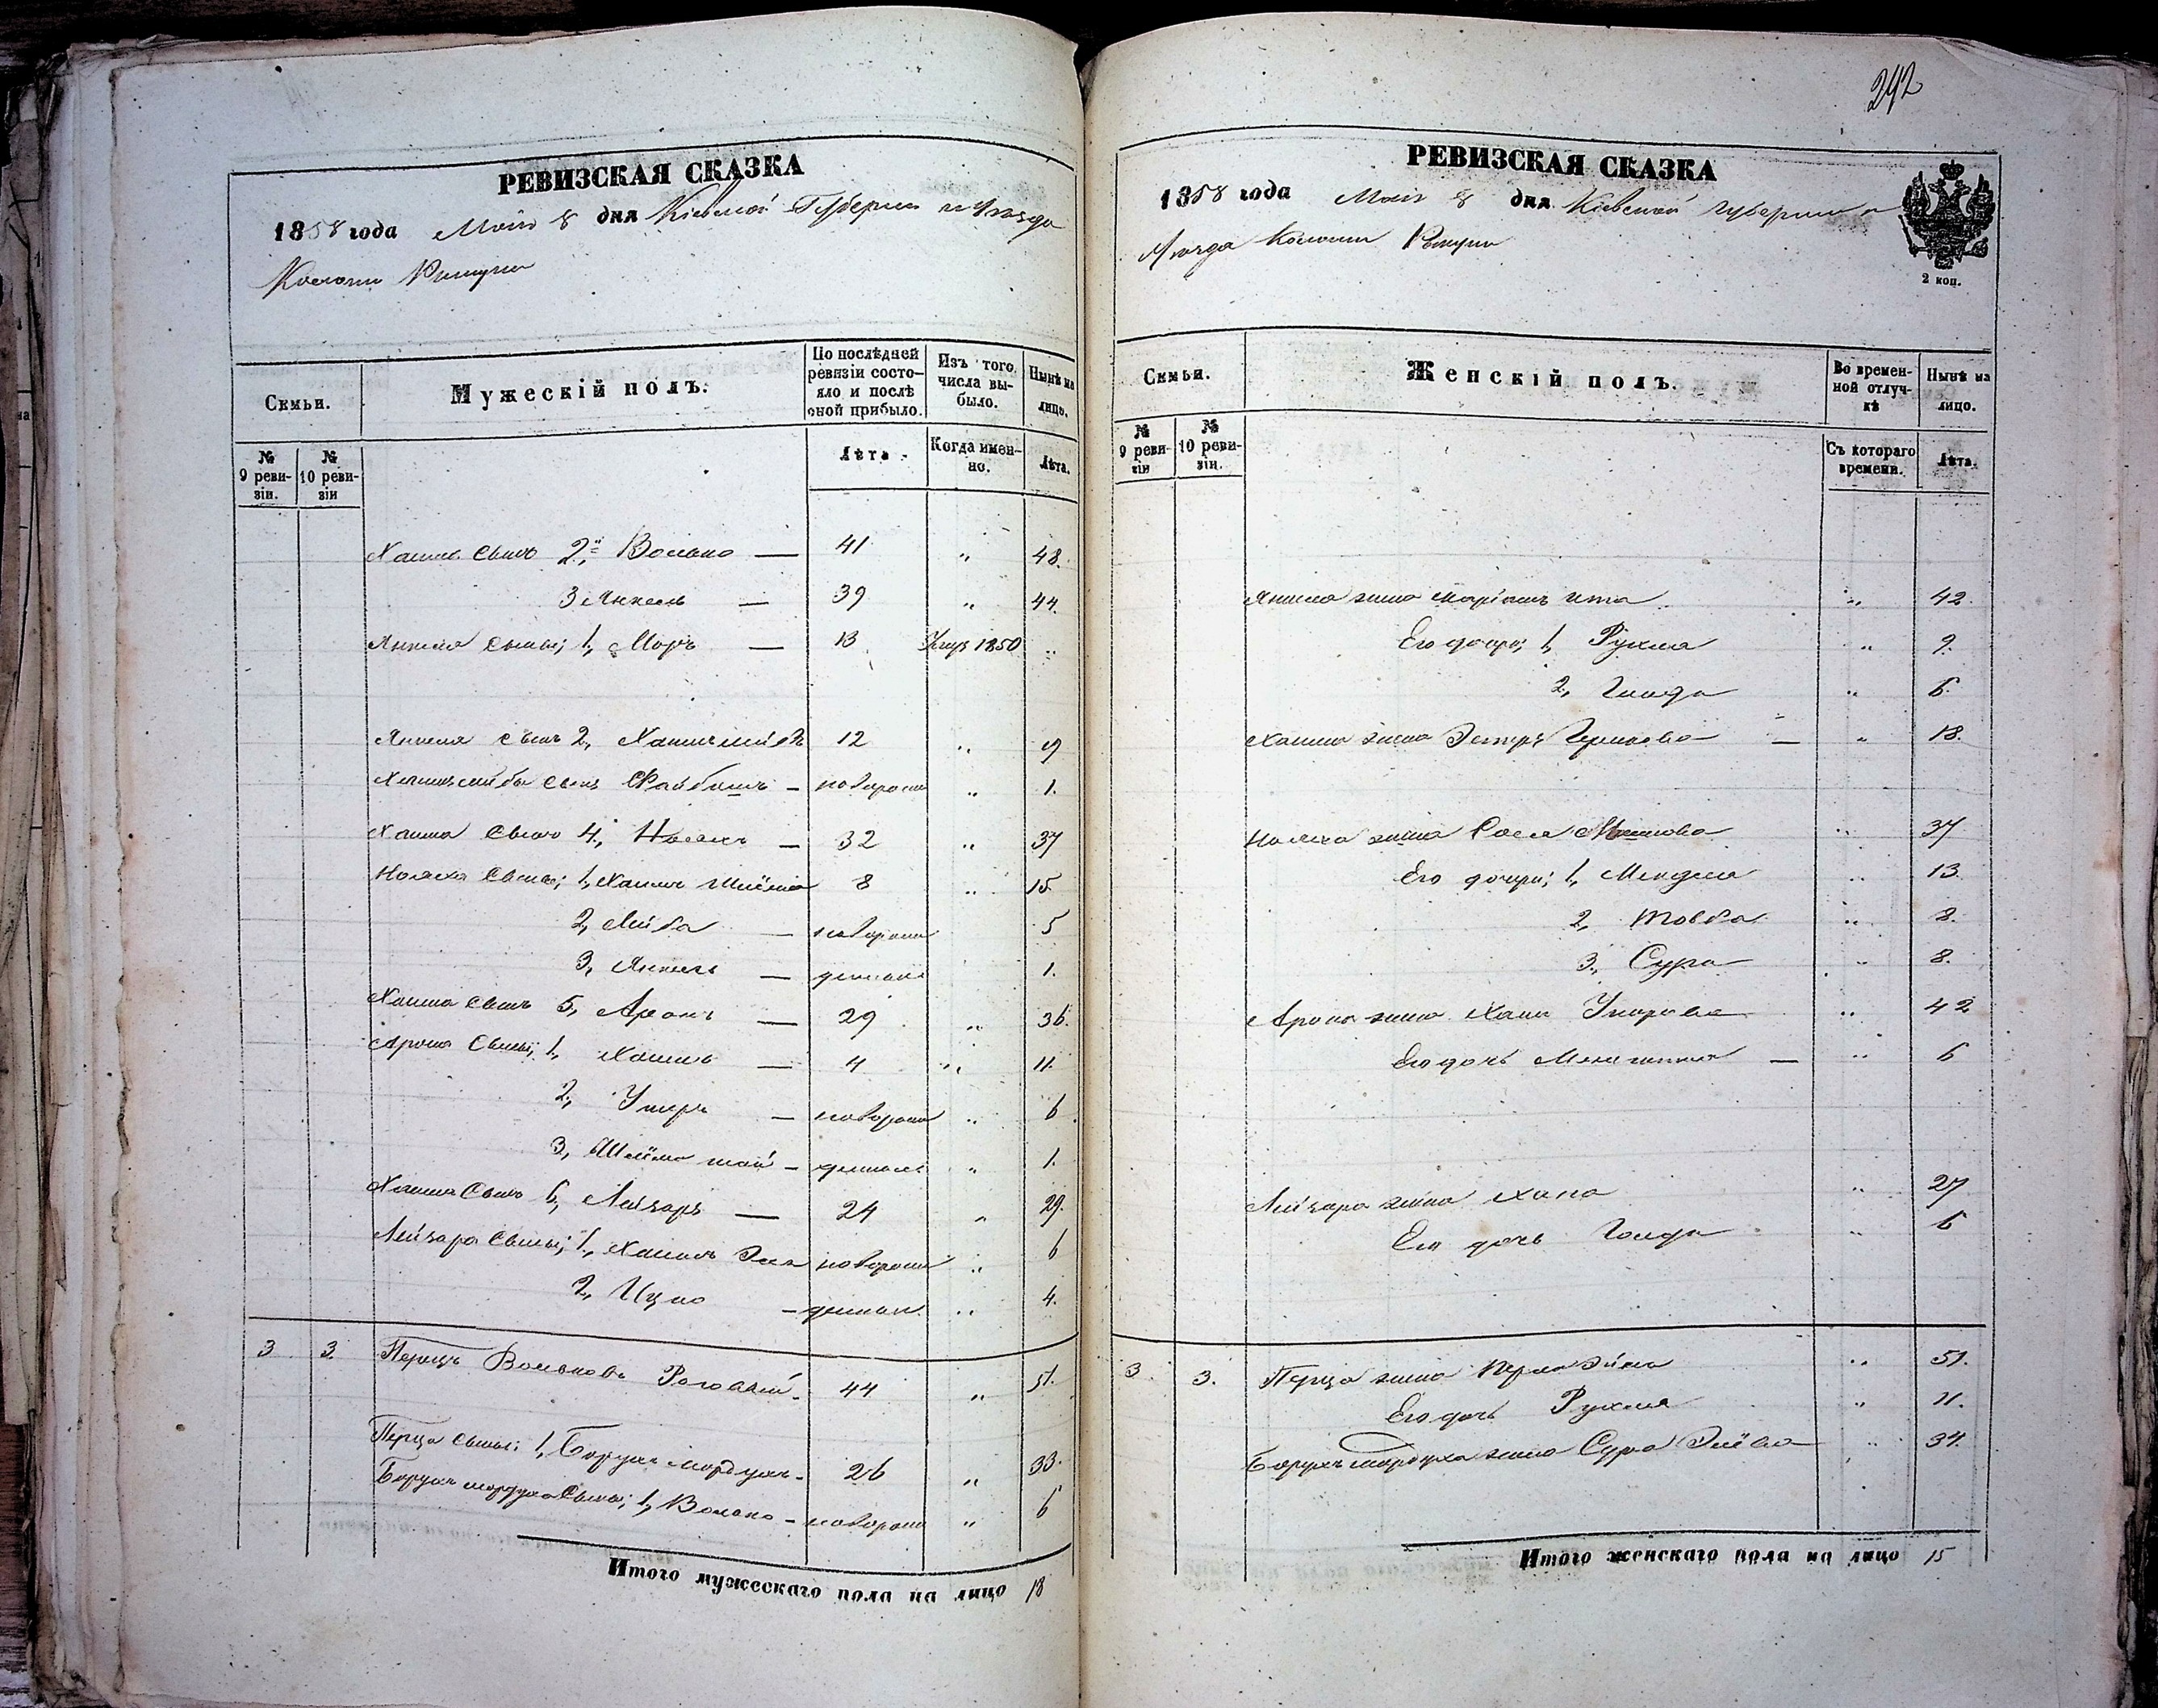 242
РЕВИЗСКАЯ СКАЗКА
1858 года Мая 8 дня Кіевской Губерніи и Уезда
Колоніи
Семьи.
Мужескій полъ.
По послѣдней ревизіи состояло и послѣ оной прибыло.
Изъ того числа выбыло.
Нынѣ на лицо.
№ 9 ревизіи.
№ 10 ревизіи
Лѣта.
Когда именно.
Лѣта.
Хаима сынъ 2й Волько — 41 „ 48.
3 Янкель — 39 „ 44.
Янкеля сыны; 1, — 13 1850 „
Янкеля сынъ 2, Хаимълейбъ 12 „ 19
Хаимълейбы сынъ Файбишъ — новорож „ 1.
Хаима сынъ 4, — 32 „ 37
сыны; 1, Хаимъ Шлёма 8 „ 15
2, Лейба — новорож 5
3, Янкель — 1.
Хаима сынъ 5, Аронъ — 29 „ 36.
Арона сыны; 1, Хаимъ — 4 „ 11.
2, — новорож „ 6
3, Шлёма — „ 1.
Хаима сынъ 6, Лейзаръ — 24 „ 29.
Лейзара сыны; 1, Хаимъ новорож „ 6
2, Ицко — „ 4.
3 3. Перецъ Вольковъ 44 „ 51.
Перца сыны; 1, Борухъ мордухъ - 26 „ 33.
Борухъ мордуха сыны; 1, Волько — новорож „ 6
Итого мужескаго пола на лицо 18
РЕВИЗСКАЯ СКАЗКА
1858 года Мая 8 дня Кіевской губерніи и
Уезда Колоніи
2 коп.
Семьи.
Женскій полъ.
Во временной отлучкѣ
Нынѣ на лицо.
№ 9 ревизіи
№ 10 ревизіи.
Съ котораго времени.
Лѣта.
Янкеля жена Маріамъ Ита „ 42.
Его дочери; 1, Рухля „ 9.
2, „ 6.
Хаима жена Эстеръ — „ 18.
жена „ 37
Его дочери; 1, „ 13.
2, Товба „ 8.
3, Сура „ 8.
Арона жена Хана „ 42
Его дочь — „ 6
Лейзара жена Хана „ 27
Его дочь Голда „ 6
3 3. Перца жена „ 51.
Его дочь Рухля „ 11.
Борухъ мордуха жена Сура „ 34.
Итого женскаго пола на лицо 15